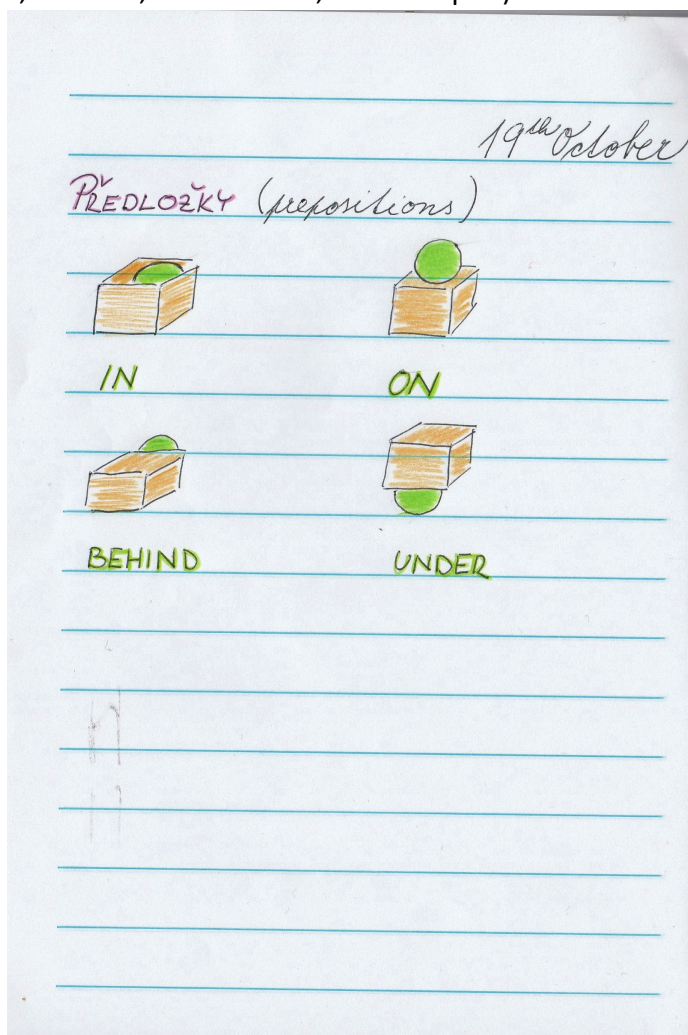 19th October
PŘEDLOŽKY (prepositions)
IN ON
BEHIND UNDER